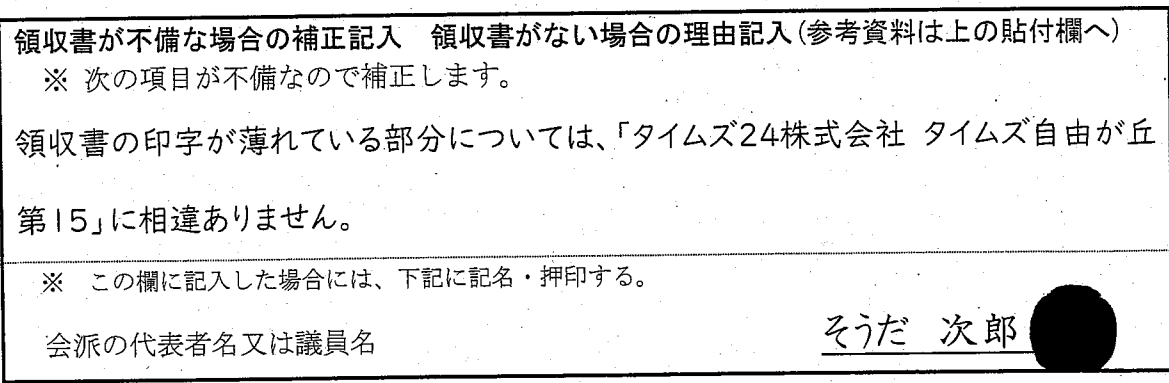 領収書が不備な場合の補正記入　領収書がない場合の理由記入(参考資料は上の貼付欄へ)
※ 次の項目が不備なので補正します。
領収書の印字が薄れている部分については、「タイムズ24株式会社 タイムズ自由が丘
第15」に相違ありません。
※　この欄に記入した場合には、下記に記名・押印する。
会派の代表者名又は議員名　そうだ 次郎